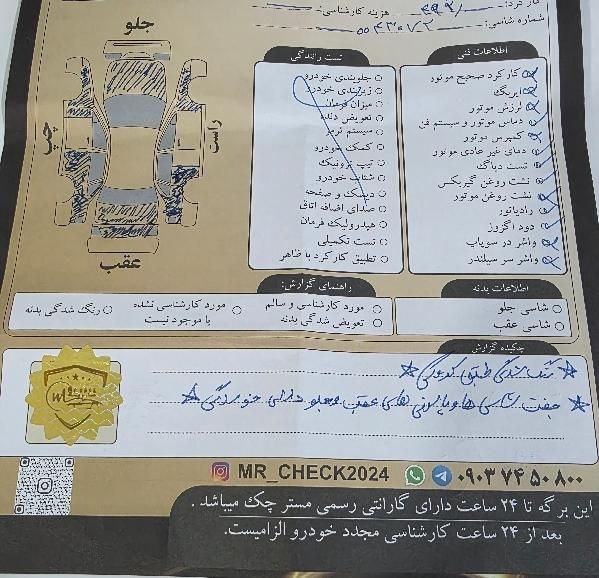 کارکرد:
هزینه کارشناسی:
شماره شاسی: ۰۵۴۳۰۱۷۲
جلو
چپ
راست
عقب
تست رانندگی
جلوبندی خودرو
زیربندی خودرو
میزان فرمان
تعویض دنده
سیستم ترمز
کمک خودرو
تیپ ترونیک
شتاب خودرو
دیسک و صفحه
صدای اضافه اتاق
هیدرولیک فرمان
تست تکمیلی
تطبیق کارکرد با ظاهر
اطلاعات فنی
کارکرد صحیح موتور
ایربگ
لرزش موتور
دماس موتور و سیستم فن
کمپرس موتور
دمای غیر عادی موتور
تست دیاگ
نشت روغن گیربکس
نشت روغن موتور
رادیاتور
دود اگزوز
واشر در سوپاپ
واشر سر سیلندر
اطلاعات بدنه
شاسی جلو
شاسی عقب
راهنمای گزارش:
مورد کارشناسی و سالم
تعویض شدگی بدنه
مورد کارشناسی نشده
یا موجود نیست
رنگ شدگی بدنه
چکیده گزارش
رنگ شدگی طبق کروکی
جفت شاسی ها و پالونی های عقب و جلو دارای خوردگی
MR_CHECK2024
۰۹۰۳ ۷۴ ۵۰ ۸۰۰
این برگه تا ۲۴ ساعت دارای گارانتی رسمی مستر چک میباشد .
بعد از ۲۴ ساعت کارشناسی مجدد خودرو الزامیست.